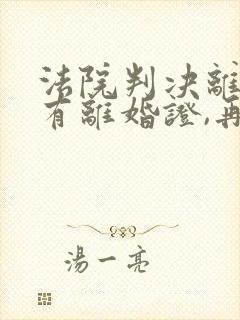 法院判決離
有離婚證,再
湯一亮